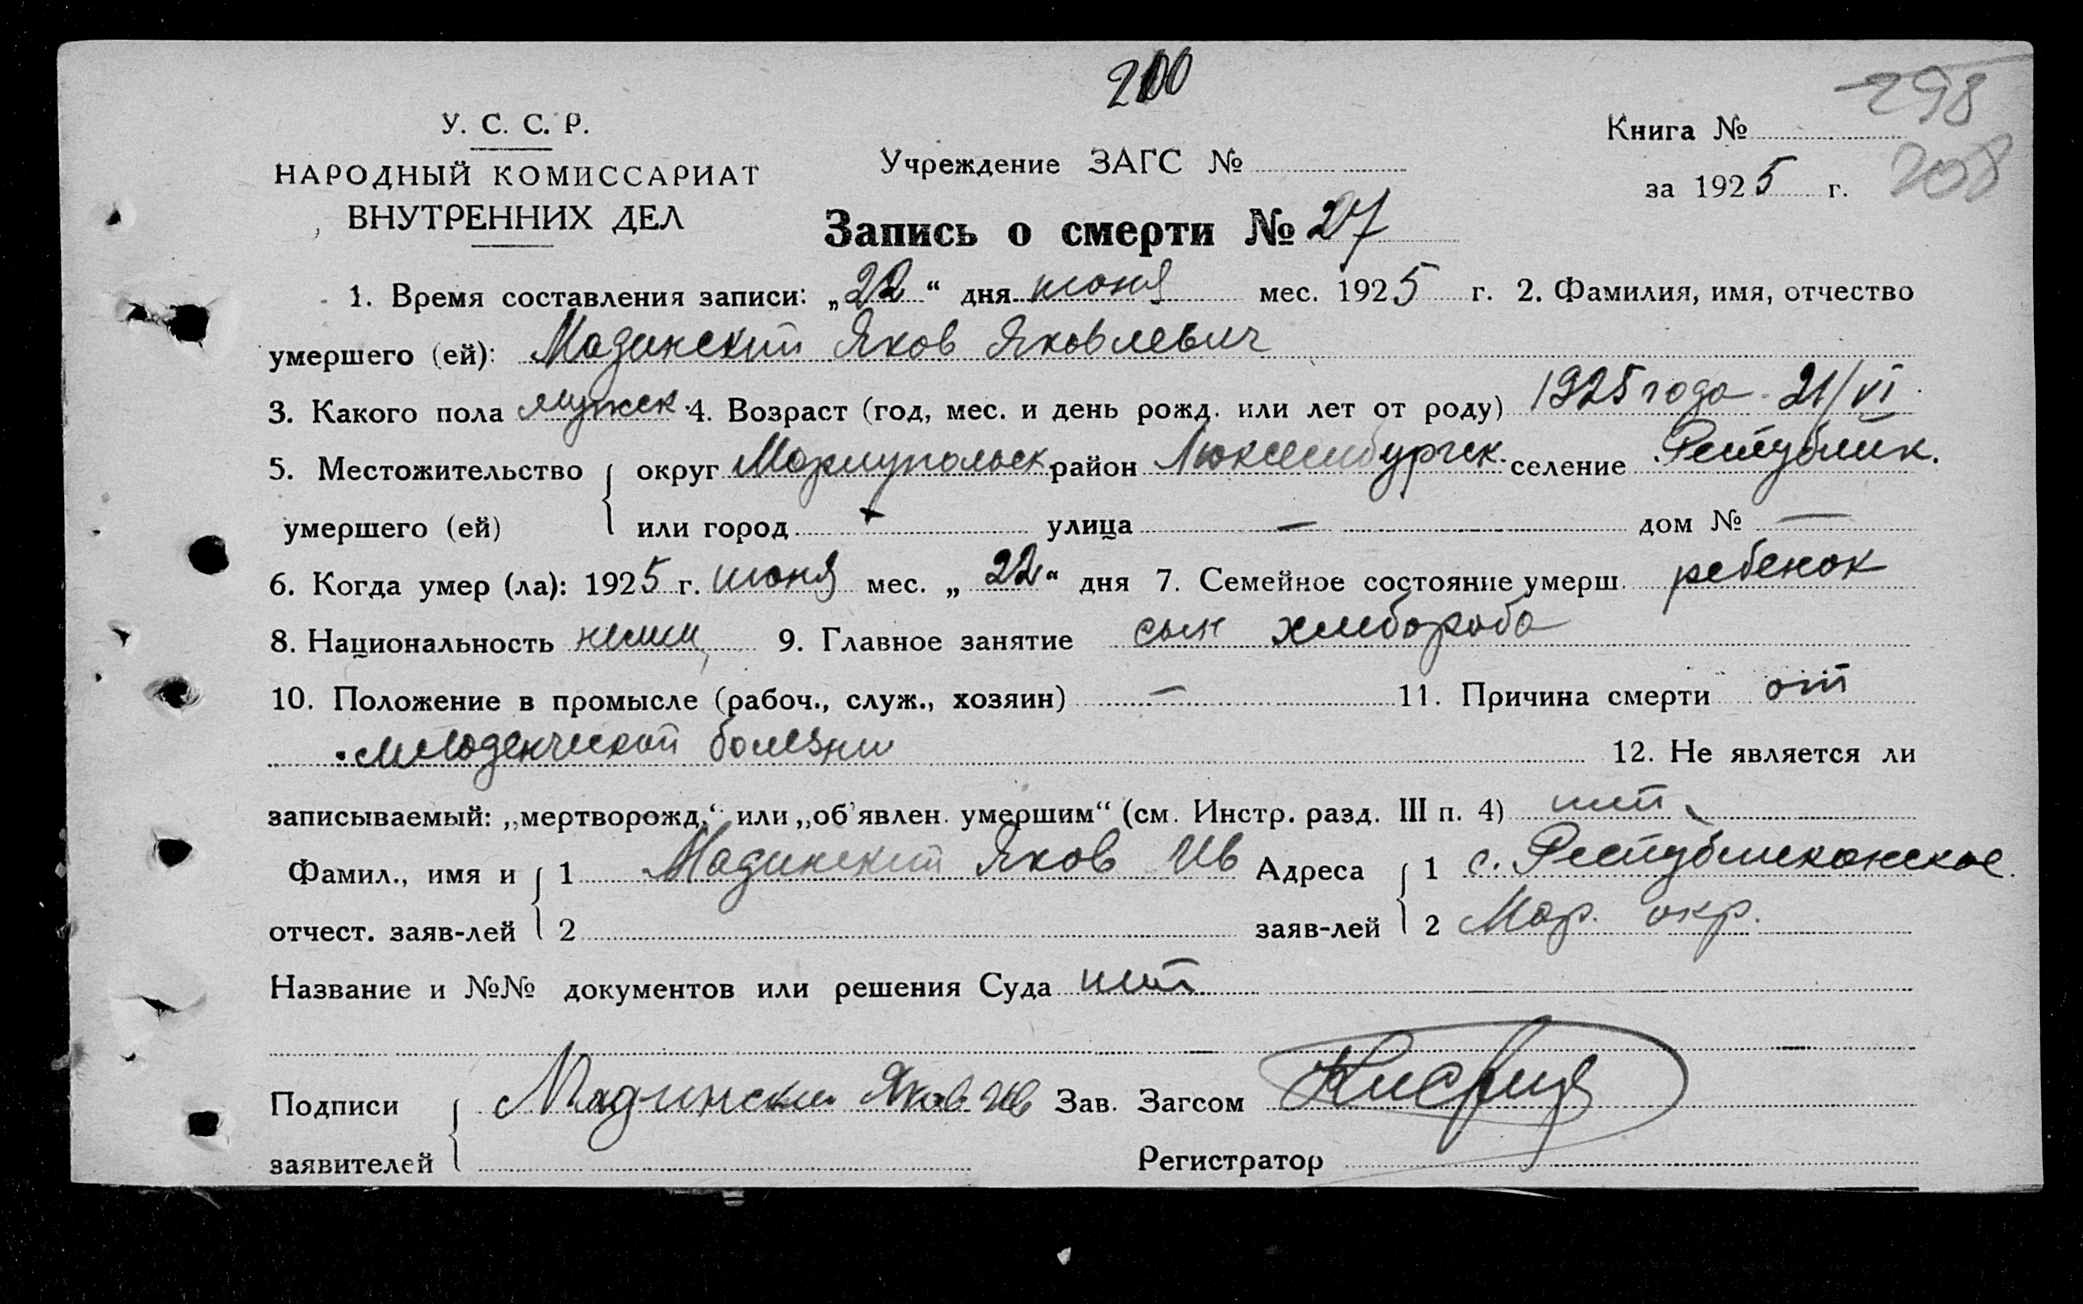 200
298
У. С. С. Р.
Книга №
НАРОДНЫЙ КОМИССАРИАТ
Учреждение ЗАГС №
за 1925 г. 208
ВНУТРЕННИХ ДЕЛ
Запись о смерти № 27
1. Время составления записи: „22“ дня июня мес. 1925 г. 2. Фамилия, имя, отчество
умершего (ей): Мадинский Яков Яковлевич
3. Какого пола мужск. 4. Возраст (год, мес. и день рожд. или лет от роду) 1925 года 21/VI
5. Местожительство { округ Мариупольск. район Люксембургск. селение Республик.
умершего (ей) или город + улица — дом № —
6. Когда умер (ла): 1925 г. июня мес. „22“ дня 7. Семейное состояние умерш. ребенок
8. Национальность немец 9. Главное занятие сын хлебороба
10. Положение в промысле (рабоч., служ., хозяин) — 11. Причина смерти от
младенческой болезни 12. Не является ли
записываемый: „мертворожд.“ или „об'явлен. умершим“ (см. Инстр. разд. III п. 4) нет
Фамил., имя и { 1 Мадинский Яков Ив Адреса { 1 с. Республиканское.
отчест. заяв-лей 2 заяв-лей 2 Мар. окр.
Название и №№ документов или решения Суда нет
Подписи { Мадински Яков Ив Зав. Загсом
заявителей Регистратор